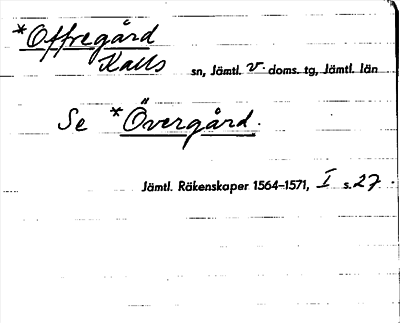 *Offregård
Kalls sn, Jämtl. v. doms. tg, Jämtl. län
Se *Övergård.
Jämtl. Räkenskaper 1564–1571, I s. 27.